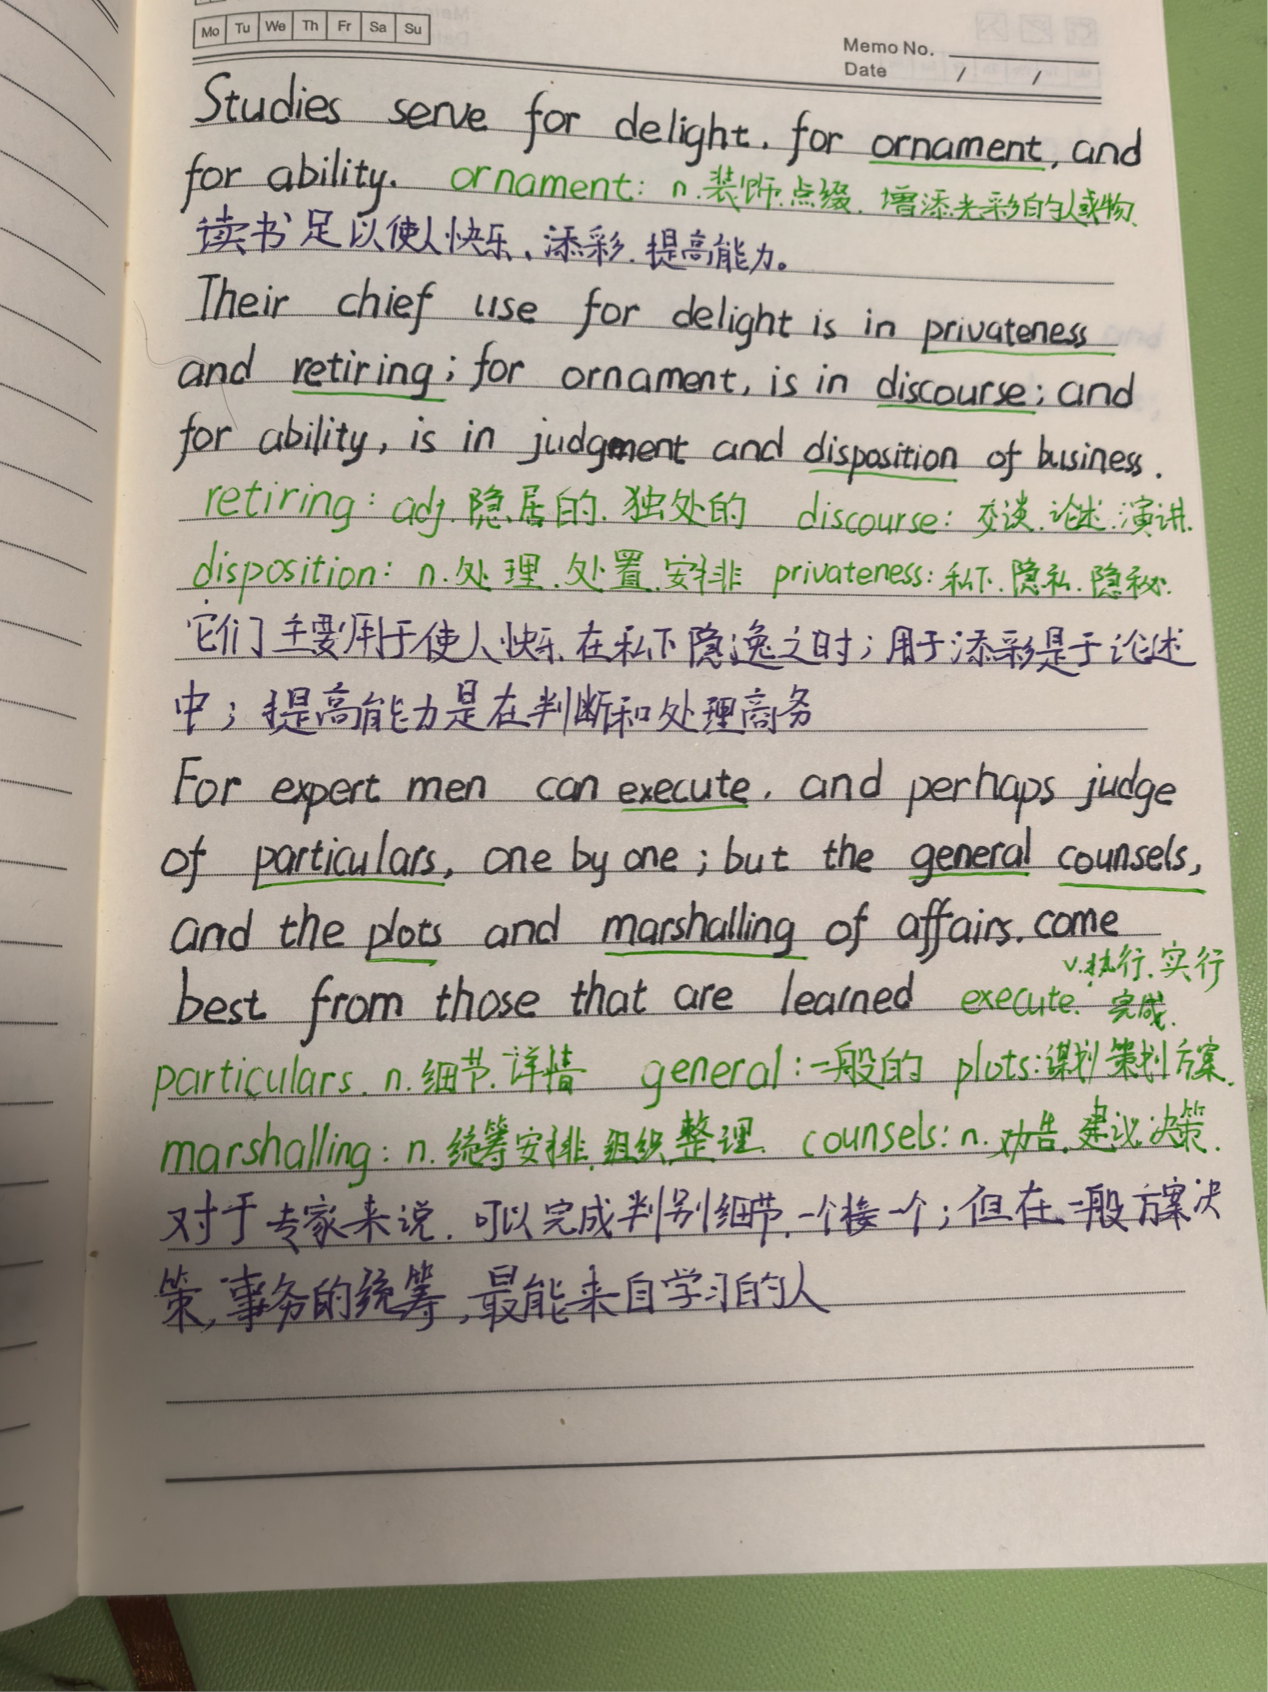 Mo Tu We Th Fr Sa Su
Memo No.
Date / /
Studies serve for delight, for ornament, and
for ability. ornament: n.装饰.点缀.增添光彩的人或物.
读书足以使人快乐、添彩.提高能力。
Their chief use for delight is in privateness
and retiring; for ornament, is in discourse; and
for ability, is in judgment and disposition of business.
retiring: adj.隐居的.独处的 discourse: 交谈.论述.演讲.
disposition: n.处理.处置.安排 privateness:私下.隐私.隐秘.
它们主要用于使人快乐.在私下隐逸之时;用于添彩是于论述
中;提高能力是在判断和处理商务
For expert men can execute, and perhaps judge
of particulars, one by one; but the general counsels,
and the plots and marshalling of affairs, come
best from those that are learned execute: v.执行.实行
完成.
particulars. n.细节.详情 general:一般的 plots:谋划 策划方案.
marshalling: n.统筹安排.组织.整理. counsels: n.劝告.建议.决策.
对于专家来说.可以完成判别细节.一个接一个;但在一般方案决
策,事务的统筹,最能来自学习的人